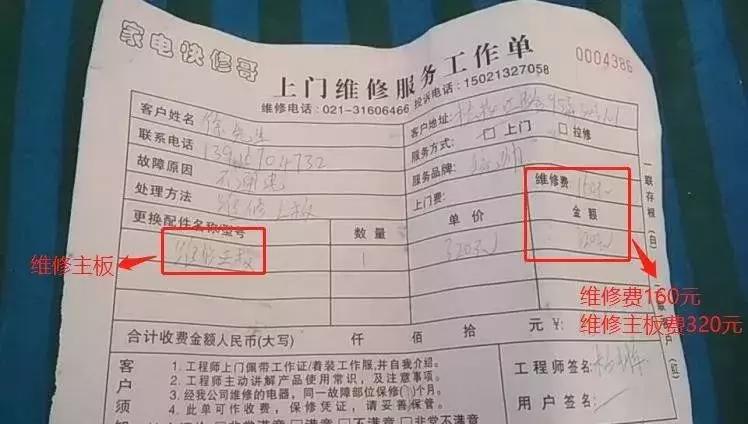 家电快修哥
0004386
上门维修服务工作单
维修电话：021-31606466 投诉电话：15021327058
客户姓名
客户地址：
联系电话
服务方式：□上门 □拉修
故障原因 不通电
服务品牌：
处理方法 维修主板
上门费： 维修费 160元
更换配件名称型号 数量 单价 金额
维修主板 1 320元 320元
维修主板
维修费160元
维修主板费320元
合计收费金额人民币(大写) 仟 佰 拾 元 ¥:
客户须
1. 工程师上门佩带工作证/着装工作服,并自我介绍。
2. 工程师主动讲解产品使用常识，及注意事项。
3. 经我公司维修的电器，同一故障部位保修( )个月。
4. 此单可作收费，保修凭证，请妥善保管。
工程师签名:
用户签名:
一联存根(白)